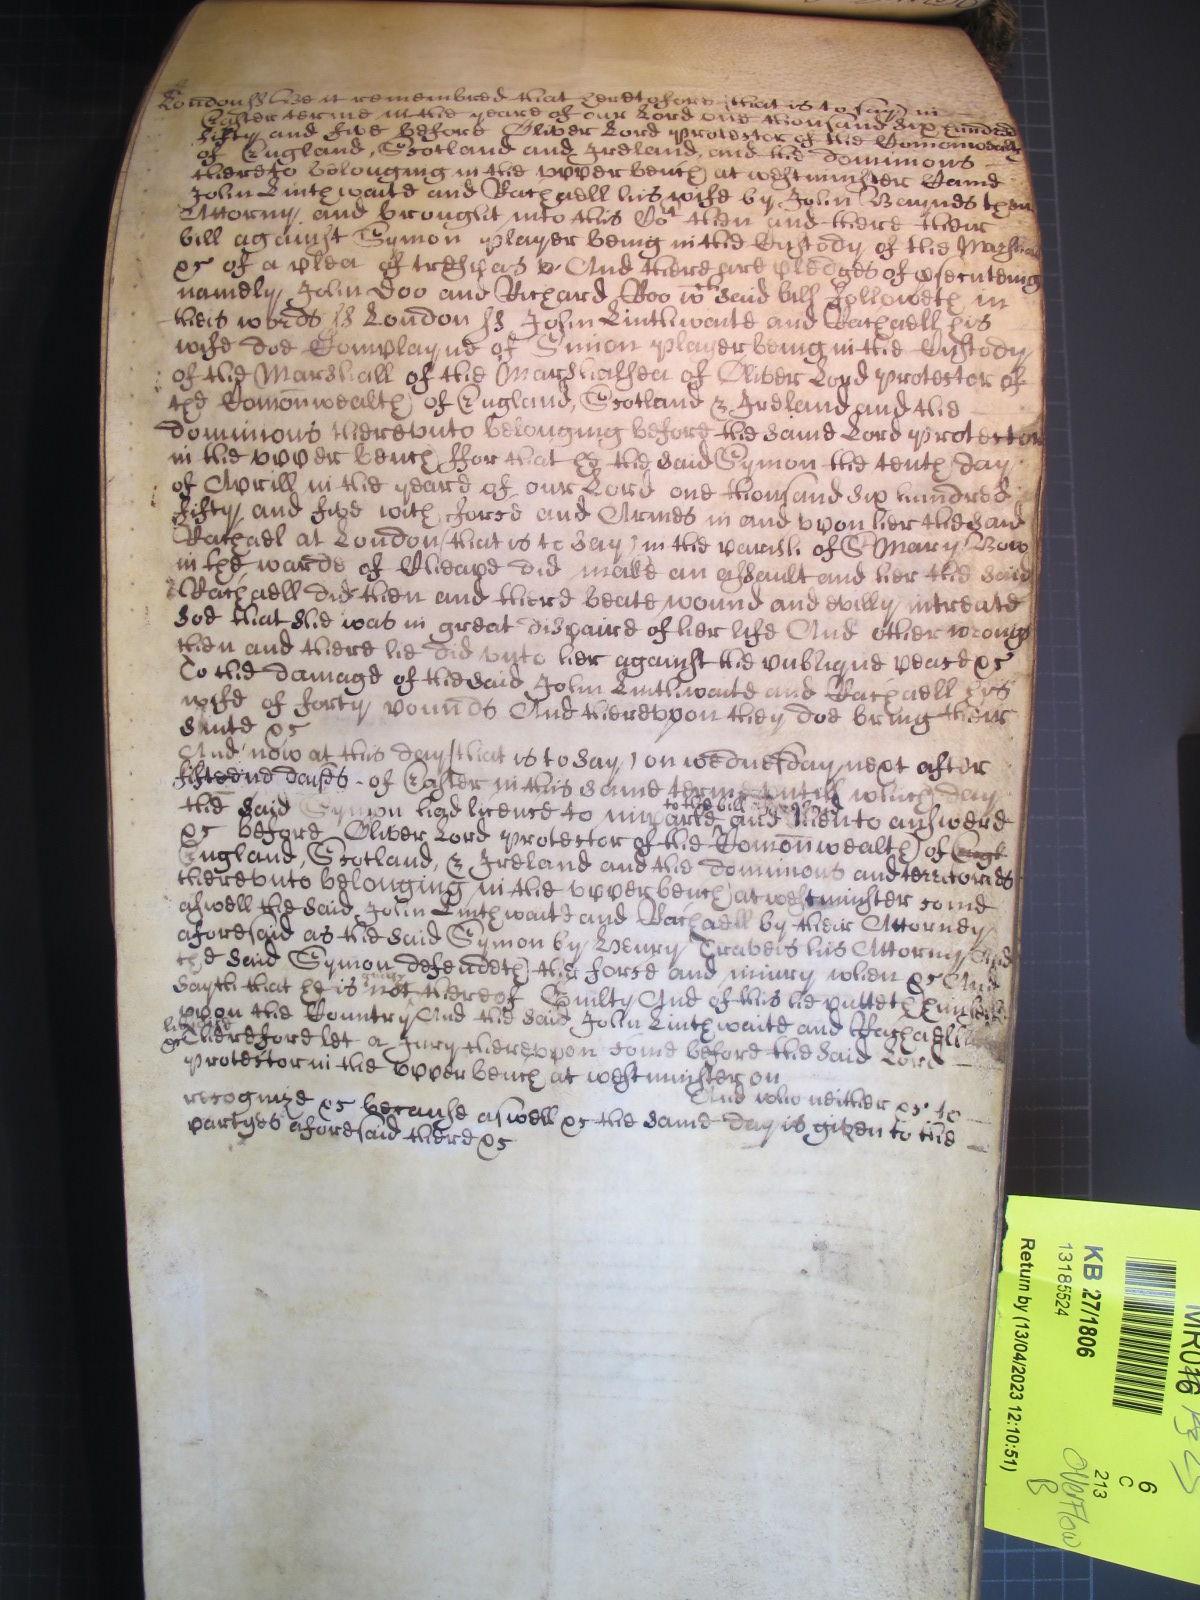 London ss Bee it remembred that heretofore (that is to say) in
Easter terme in the yeare of our Lord one thousand six hundred
fifty and five before Oliver Lord protector of the Comonwealth
of England, Scotland and Ireland, and the dominions
thereto belonging in the upper bench at westminster Came
John Linthwaite and Rachaell his wife by John Baynes their
Attorny and brought into this Cort then and there their
bill against Symon player being in the Custody of the Marshall
&c of a plea of trespas &c And there are pledges of psecuteing
namely John Doo and Richard Roo wch said bill followeth in
theis words ss London ss John Linthwaite and Rachaell his
wife doe Complayne of Simon player being in the Custody
of the Marshall of the Marshalsea of Oliver Lord protector of
the Comonwealth of England, Scotland & Ireland and the
dominions thereunto belonging before the same Lord protector
in the upper bench ffor that he the said Symon the tenth day
of Aprill in the yeare of our Lord one thousand six hundred
fifty and five with force and Armes in and upon her the said
Rachael at London (that is to say) in the parish of St Mary Bow
in the warde of Cheape did make an assault and her the said
Rachaell did then and there beate wound and evilly intreate
Soe that she was in great dispaire of her life And other wrongs
then and there he did unto her against the publique peace &c
To the damage of the said John Linthwaite and Rachaell his
wife of forty pounds And thereupon they doe bring their
suite &c
And now at this day (that is to say) on wednesday next after
fifteene dayes of Easter in this same terme untill which day
the said Symon had licence to imparle to the bill and then to answere
&c before Oliver Lord protector of the Comonwealth of Engl
England, Scotland, & Ireland and the dominions and territories
thereunto belonging in the upper bench at westminster come
aswell the said John Linthwaite and Rachaell by their Attorney
aforesaid as the said Symon by Henry Travers his Attorny And
the said Symon defendeth the force and iniury when &c And
sayth that he is not thereof Guilty And of this he putteth himselfe
upon the Country And the said John Linthwaite and Rachaell
likewise &c Therefore let a Jury thereupon come before the said Lord
protector in the upper bench at westminster on
And who neither &c to
recognize &c because aswell &c the same day is given to the
partyes aforesaid there &c
KB 27/1806
13185524
Return by (13/04/2023 12:10:51)
6
C
213
Overflow
B